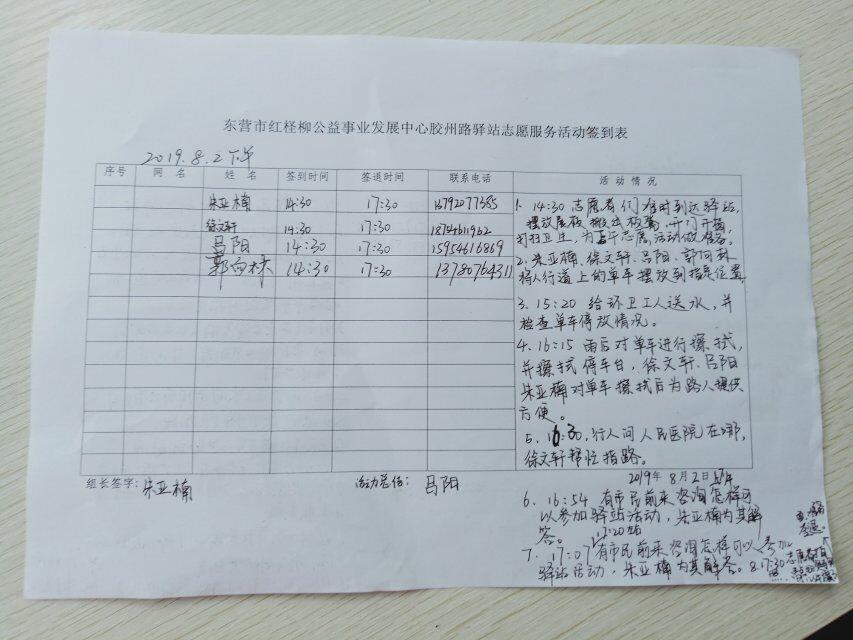 东营市红柽柳公益事业发展中心胶州路驿站志愿服务活动签到表
2019.8.2下午
序号 网 名 姓 名 签到时间 签退时间 联系电话 活 动 情 况
朱亚楠 14:30 17:30 13792077385
徐文轩 14:30 17:30 18754611962
吕阳 14:30 17:30 15954616869
郭向林 14:30 17:30 13780764311
1. 14:30 志愿者们准时到达驿站,
打扫卫生,为下午志愿活动做准备。
2. 朱亚楠、徐文轩、吕阳、郭向林
将人行道上的单车摆放到指定位置
3. 15:20 给环卫工人送水,并
检查单车停放情况。
4. 16:15 雨后对单车进行擦拭,
并擦拭停车台,徐文轩、吕阳
朱亚楠对单车擦拭后为路人提供
方便。
5. 16:30,行人问人民医院在哪,
徐文轩帮忙指路。
组长签字: 朱亚楠 活动总结: 吕阳
2019年 8月2日
6. 16:54 有市民前来咨询怎样可
以参加驿站活动,朱亚楠为其解
答。
7. 17:07 有市民前来咨询怎样可以参加
驿站活动,朱亚楠为其解答。8. 17:30 志愿者